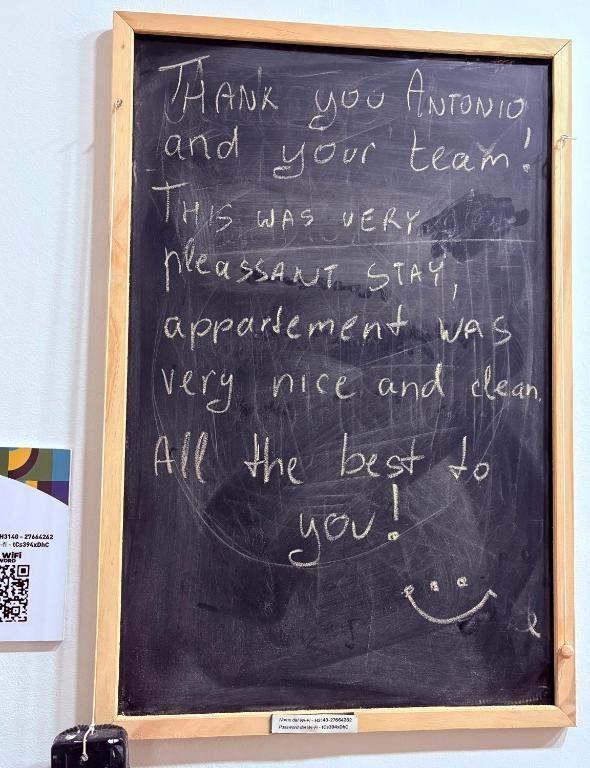 THANK you ANTONIO
and your team!
THIS WAS VERY
pleASSANT STAY,
appartement WAS
very nice and clean.
All the best to
you!
H3140 - 27664262
-fi - tCs394xDhC
WiFi
WORD
Nome del Wi-Fi - H3140-27664262
Password del Wi-Fi - tCs394xDhC